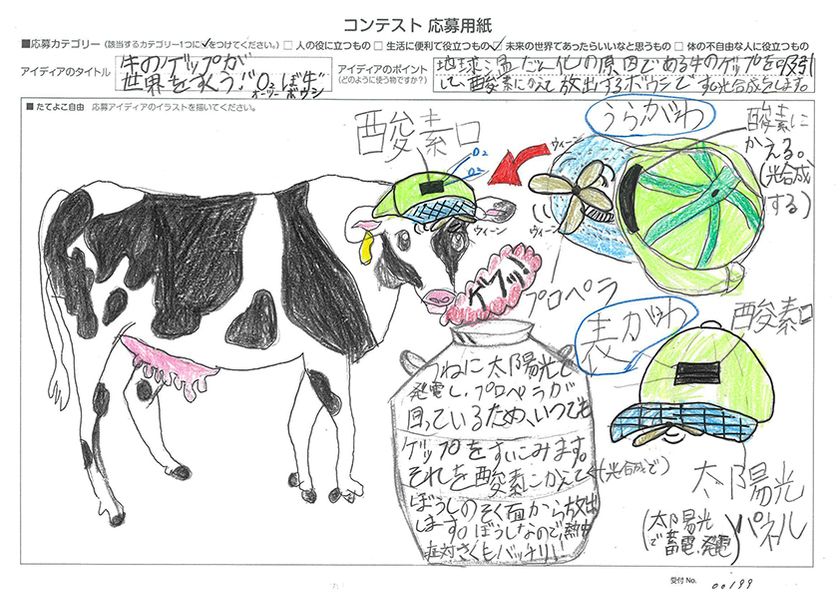 コンテスト 応募用紙
■応募カテゴリー(該当するカテゴリー1つに✓をつけてください。) □ 人の役に立つもの □ 生活に便利で役立つもの ☑ 未来の世界であったらいいなと思うもの □ 体の不自由な人に役立つもの
アイデアのタイトル
牛のゲップが
世界をすくう！O₂ぼ牛
オーツー ボウシ
アイデアのポイント
(どのように使う物ですか？)
地球温だん化の原因である牛のゲップを吸引
して、酸素にかえて放出するボウシです。光合成もします。
■たてよこ自由 応募アイディアのイラストを描いてください。
酸素口
O₂
O₂
ウィーン
ゲフッ！
うらがわ
ウィーン
ウィーン
プロペラ
酸素に
かえる。
(光合成
する)
表がわ
酸素口
太陽光
パネル
(太陽光
で蓄電、発電)
つねに太陽光で
発電し、プロペラが
回っているため、いつでも
ゲップをすいこみます。
それを酸素にかえて(光合成で)
ぼうしのそく面から放出
します。ぼうしなので、熱中
症対さくもバッチリ！
受付No. 00199